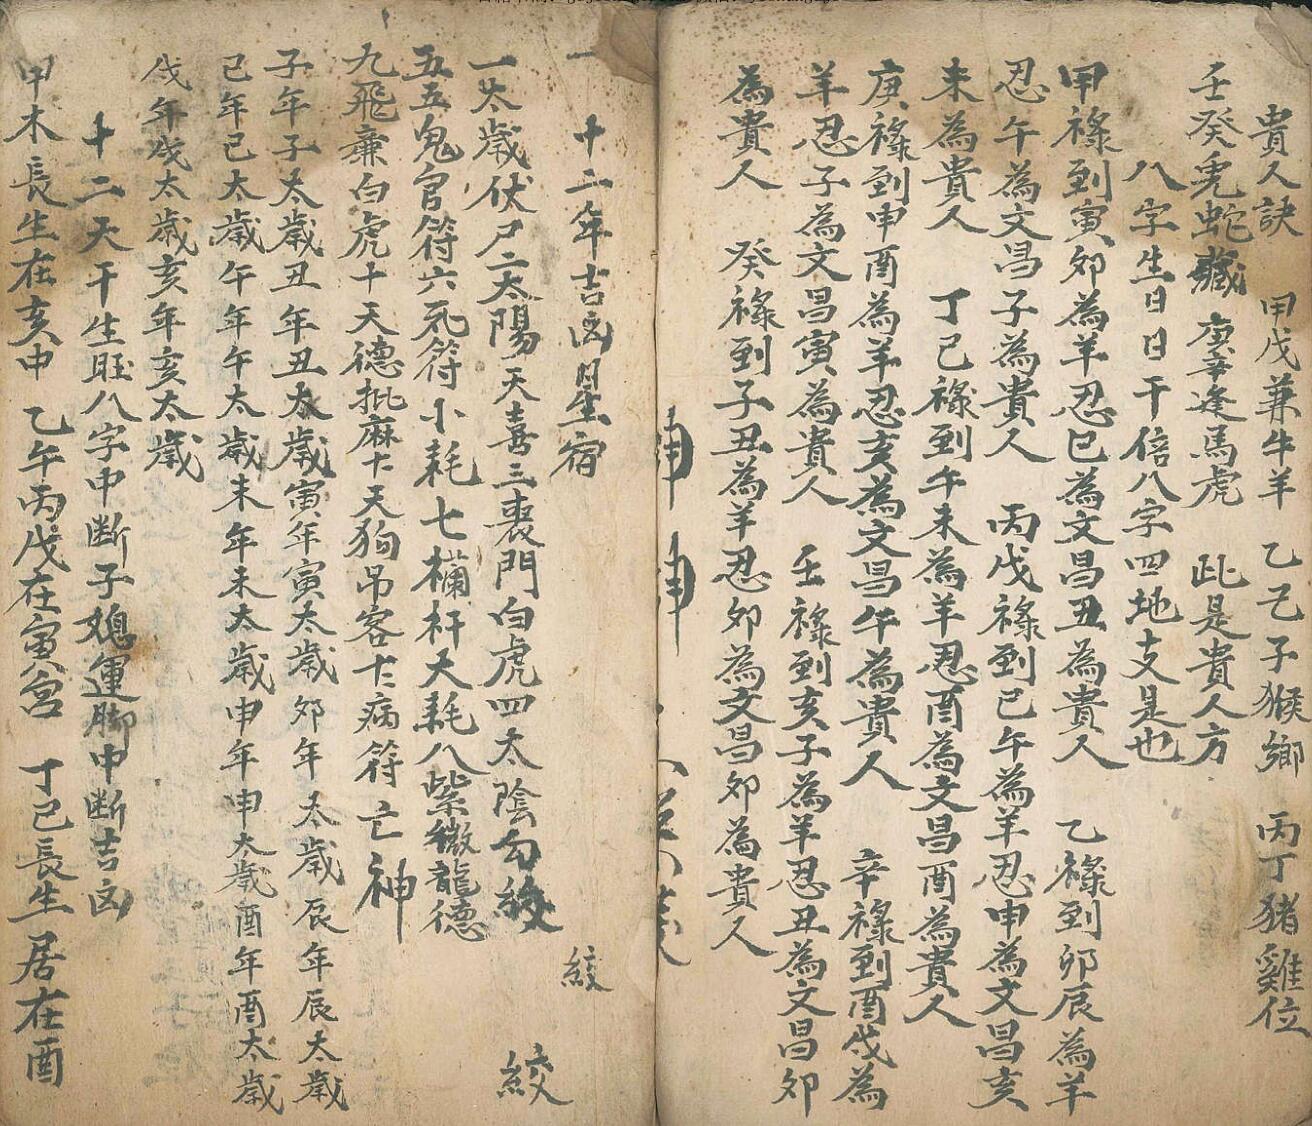 貴人訣　甲戊兼牛羊　乙己子猴鄉　丙丁猪雞位
壬癸兎蛇藏　庚辛逢馬虎　此是貴人方
八字生日日干倍八字四地支是也
甲祿到寅夘為羊忍巳為文昌丑為貴人　乙祿到夘辰為羊
忍午為文昌子為貴人　丙戊祿到巳午為羊忍申為文昌亥
未為貴人　丁己祿到午未為羊忍酉為文昌酉為貴人
庚祿到申酉為羊忍亥為文昌午為貴人　辛祿到酉戌為
羊忍子為文昌寅為貴人　壬祿到亥子為羊忍丑為文昌夘
為貴人　癸祿到子丑為羊忍夘為文昌夘為貴人
十二年吉凶星宿　絞
一太歲伏尸二太陽天喜三喪門白虎四太陰勾絞　絞
五五鬼官符六死符小耗七欄杆天耗八紫微龍德
九飛廉白虎十天德批麻十天狗吊客十病符亡神
子年子太歲丑年丑太歲寅年寅太歲夘年太歲辰年辰太歲
巳年巳太歲午年午太歲未年未太歲申年申太歲酉年酉太歲
戌年戌太歲亥年亥太歲
十二天干生旺八字中断子媳運脚中断吉凶
甲木長生在亥中　乙午丙戊在寅宮　丁己長生居在酉